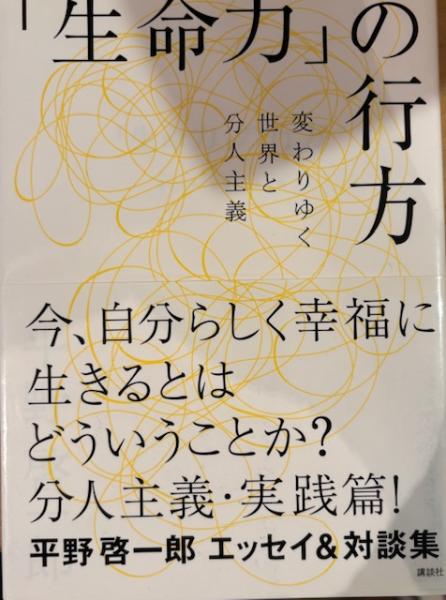 「生命力」の行方
変わりゆく
世界と
分人主義
今、自分らしく幸福に
生きるとは
どういうことか?
分人主義・実践篇!
平野啓一郎 エッセイ&対談集
講談社